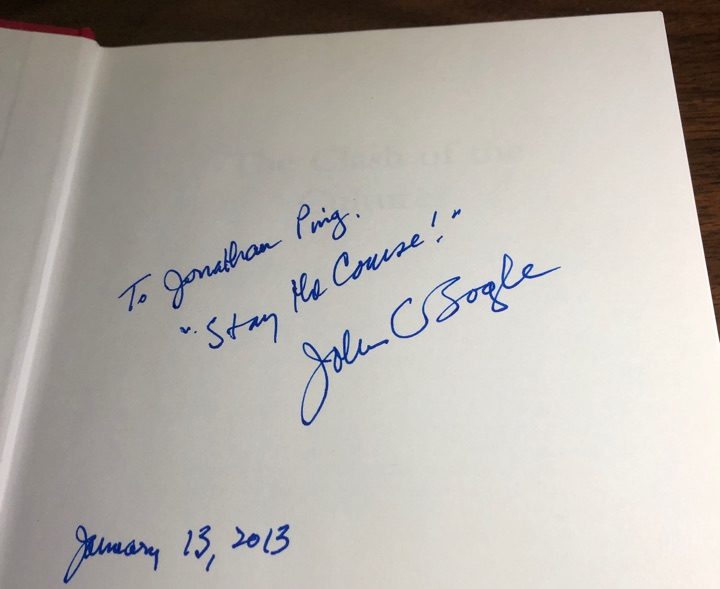 The Clash of the
To Jonathan Ping.
"Stay the Course!"
John C Bogle
January 13, 2013